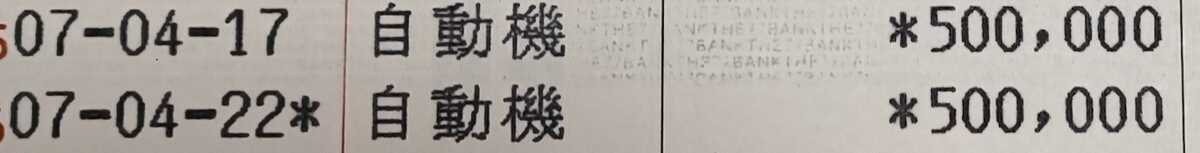 07-04-17 自動機 *500,000
07-04-22* 自動機 *500,000